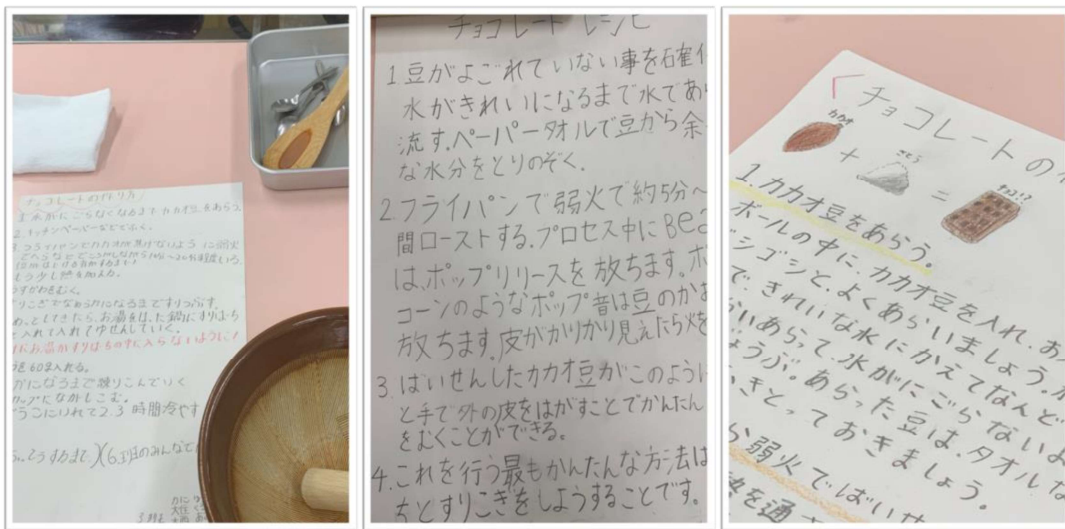 チョコレートの作り方
1. 水がにごらなくなるまでカカオ豆をあらう。
2. キッチンペーパーなどでふく。
3. フライパンでカカオ豆が焦げないように弱火
もう少し熱を加える。
うすかわをむく。
すりこぎでなめらかになるまですりつぶす。
お湯をはった鍋にすりばち
を入れてゆせんしていく。
お湯がすりばちの中に入らないように!
60g入れる。
かになるまで練りこんでいく
カップにながしこむ。
うこにいれて2.3時間冷やす
チョコレート レシピ
1 豆がよごれていない事を確
水がきれいになるまで水であ
流す。ペーパータオルで豆から余
な水分をとりのぞく。
2. フライパンで弱火で約5分~
間ローストする。プロセス中にBea
は、ポップリリースを放ちます。ポ
コーンのようなポップ音は豆のか
放ちます。皮がかりかり見えたら火を
3. はいせんしたカカオ豆がこのように
と手で外の皮をはがすことでかんたん
をむくことができる。
4. これを行う最もかんたんな方法は
ちとすりこぎをしようすることです。
チョコレートの
カカオ
+
さとう
=
チョコ!?
1. カカオ豆をあらう。
ボールの中に、カカオ豆を入れ、
ゴシゴシと、よくあらいましょう。
で、きれいな水にかえてなんど
かいあらって、水がにごらないよ
ょうぶ。あらった豆は、タオルな
ふきとっておきましょう。
弱火でばいせ
熱を通